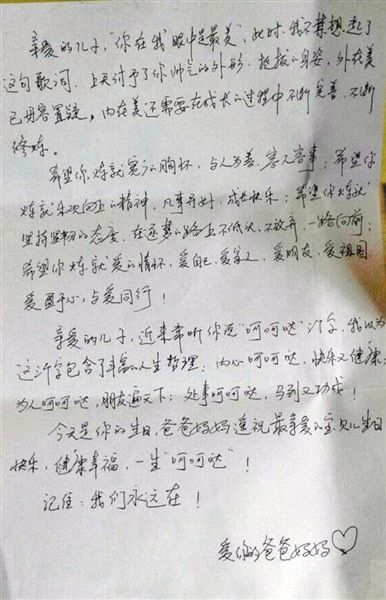 亲爱的儿子，“你在我眼中是最美”，此时，我不禁想起了
这句歌词。上天付予了你帅气的外形、挺拔的身姿，外在美
已毋容置疑，内在美还需要在成长的过程中不断完善、不断
修炼。
希望你炼就宽广的胸怀，与人为善、容人容事；希望你
炼就乐观向上的精神，凡事看好，成长快乐；希望你炼就
坚持坚韧的态度，在逐梦的路上不低头、不放弃，一路向前；
希望你炼就爱的情怀，爱自己、爱家人、爱朋友、爱祖国，
爱盈于心，与爱同行！
亲爱的儿子，近来常听你说“呵呵哒”三个字，我认为
这三个字包含了丰富的人生哲理：内心呵呵哒，快乐又健康；
为人呵呵哒，朋友遍天下；处事呵呵哒，马到又功成！
今天是你的生日，爸爸妈妈遥祝最亲爱的宝贝儿生日
快乐，健康幸福，一生“呵呵哒”！
记住：我们永远在！
爱你的爸爸妈妈♡